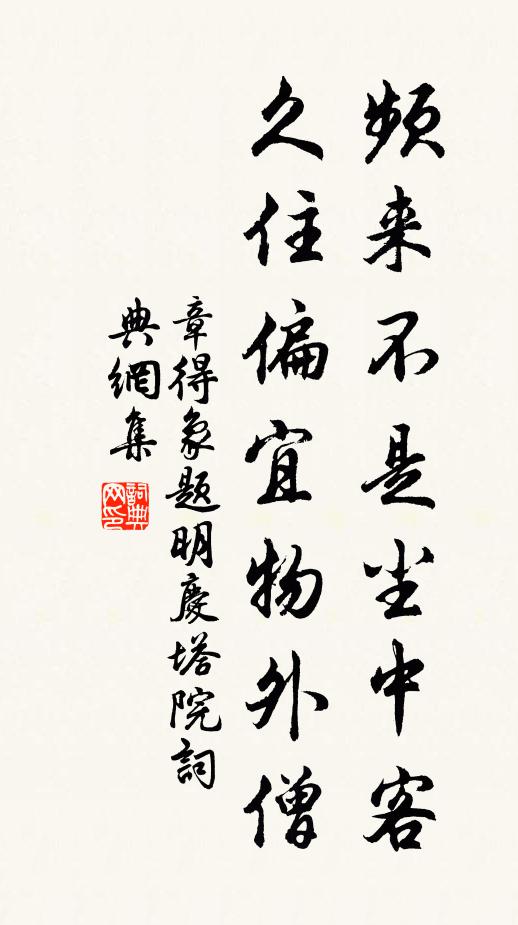 频来不是尘中客
久住偏宜物外僧
章得象題明慶塔院詞
典網集
詞典
网印